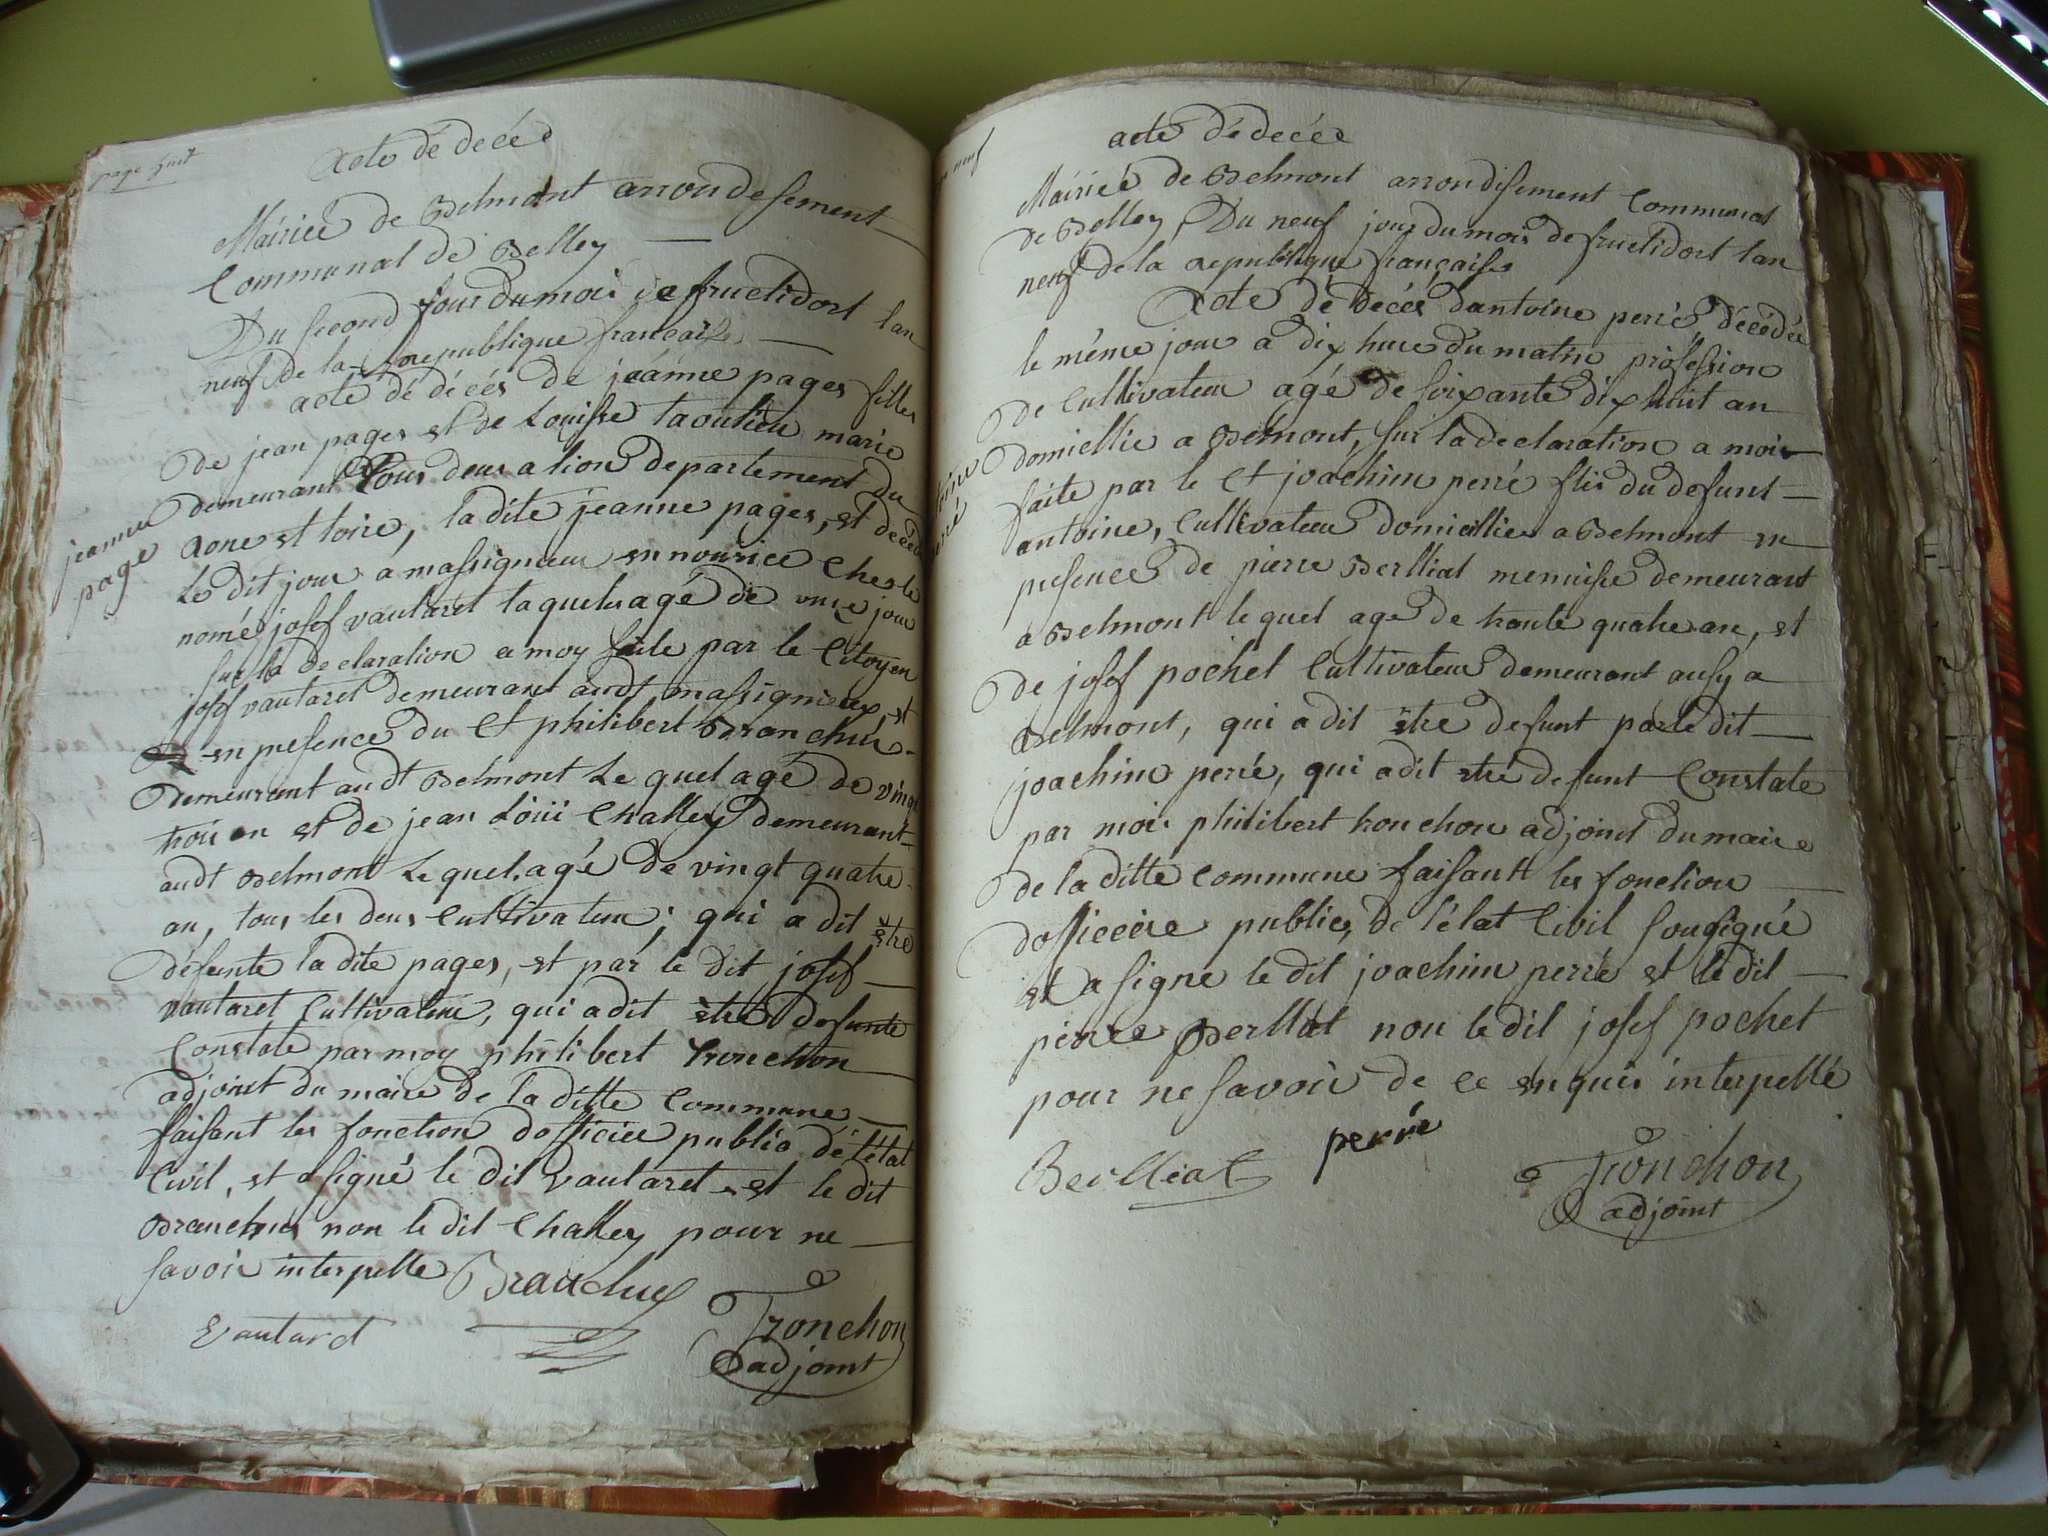 page huit
acte dé decée
Mairiée de Belmont arrondesement
Communal de Belley
Du second jour du mois de fructidort lan
neuf de la republique française
acte dé décés de jéanne pages filles
de jean pages et de Louisse laoulieu marie
demeurant tous deus a lion departement du
rone et loire, ladite jeanne pages, et décéd
jeanne
page
Le dit jour a massigneux en nourice ches le
nomé josef vautaret laqueles agé de onze jour
sur la declaration a moy faite par le Citoyen
josef vautaret demeurant audt massignieux et
en presence du Ct philibert Branchus
demeurant audt Belmont Le quel agé de vingt
troi an et de jean Loüi Challey demeurant
audt Belmont Le quel agé de vingt quatre
an, tous les deus Cultivateur; qui a dit être
défunte la dite pages, et par le dit josef
vautaret Cultivateur, qui a dit étre defunte
Constaté par moy philibert tronchon
adjoint du maire de la ditte Commune
faisant les fonction dofficiee public dé l'état
Civil, et a signé le dit vautaret et le dit
Branchus non le dit Challey pour ne
savoir interpelle Branchus
Vautard
Tronchon
adjoint
neuf
acte dé decée
Mairieé de Belmont arrondisement Communal
de Belley, Du neuf jour du mois de fructidort lan
neuf de la republique française
Acte dé decés dantoine perré, décédée
le même jour a dix hure du matin profession
de Cultivateur agé de soixante dix huit an
domiellie a Belmont, sur la declaration a moi
faite par le Ct joachim perré flis du defunt
antoine, Cultivateur domicillie a Belmont en
presence de pierre Berlliat menuisre demeurant
a Belmont le quel age de trante quatre an, et
de josef pochet Cultivateur demeurant ausy a
Belmont, qui a dit ître defunt par le dit
joachim perré, qui a dit etré defunt Constate
par moi philibert tronchon adjoint du maire
de la ditte Commune faisant les fonction
dofficiére public, de l'état Civil sousigné
et a signé le dit joachim perré et le dit
pierre Berlliat non le dit josef pochet
pour ne savoir de ce enquis interpellé
Berlliat perré Tronchon
adjoint